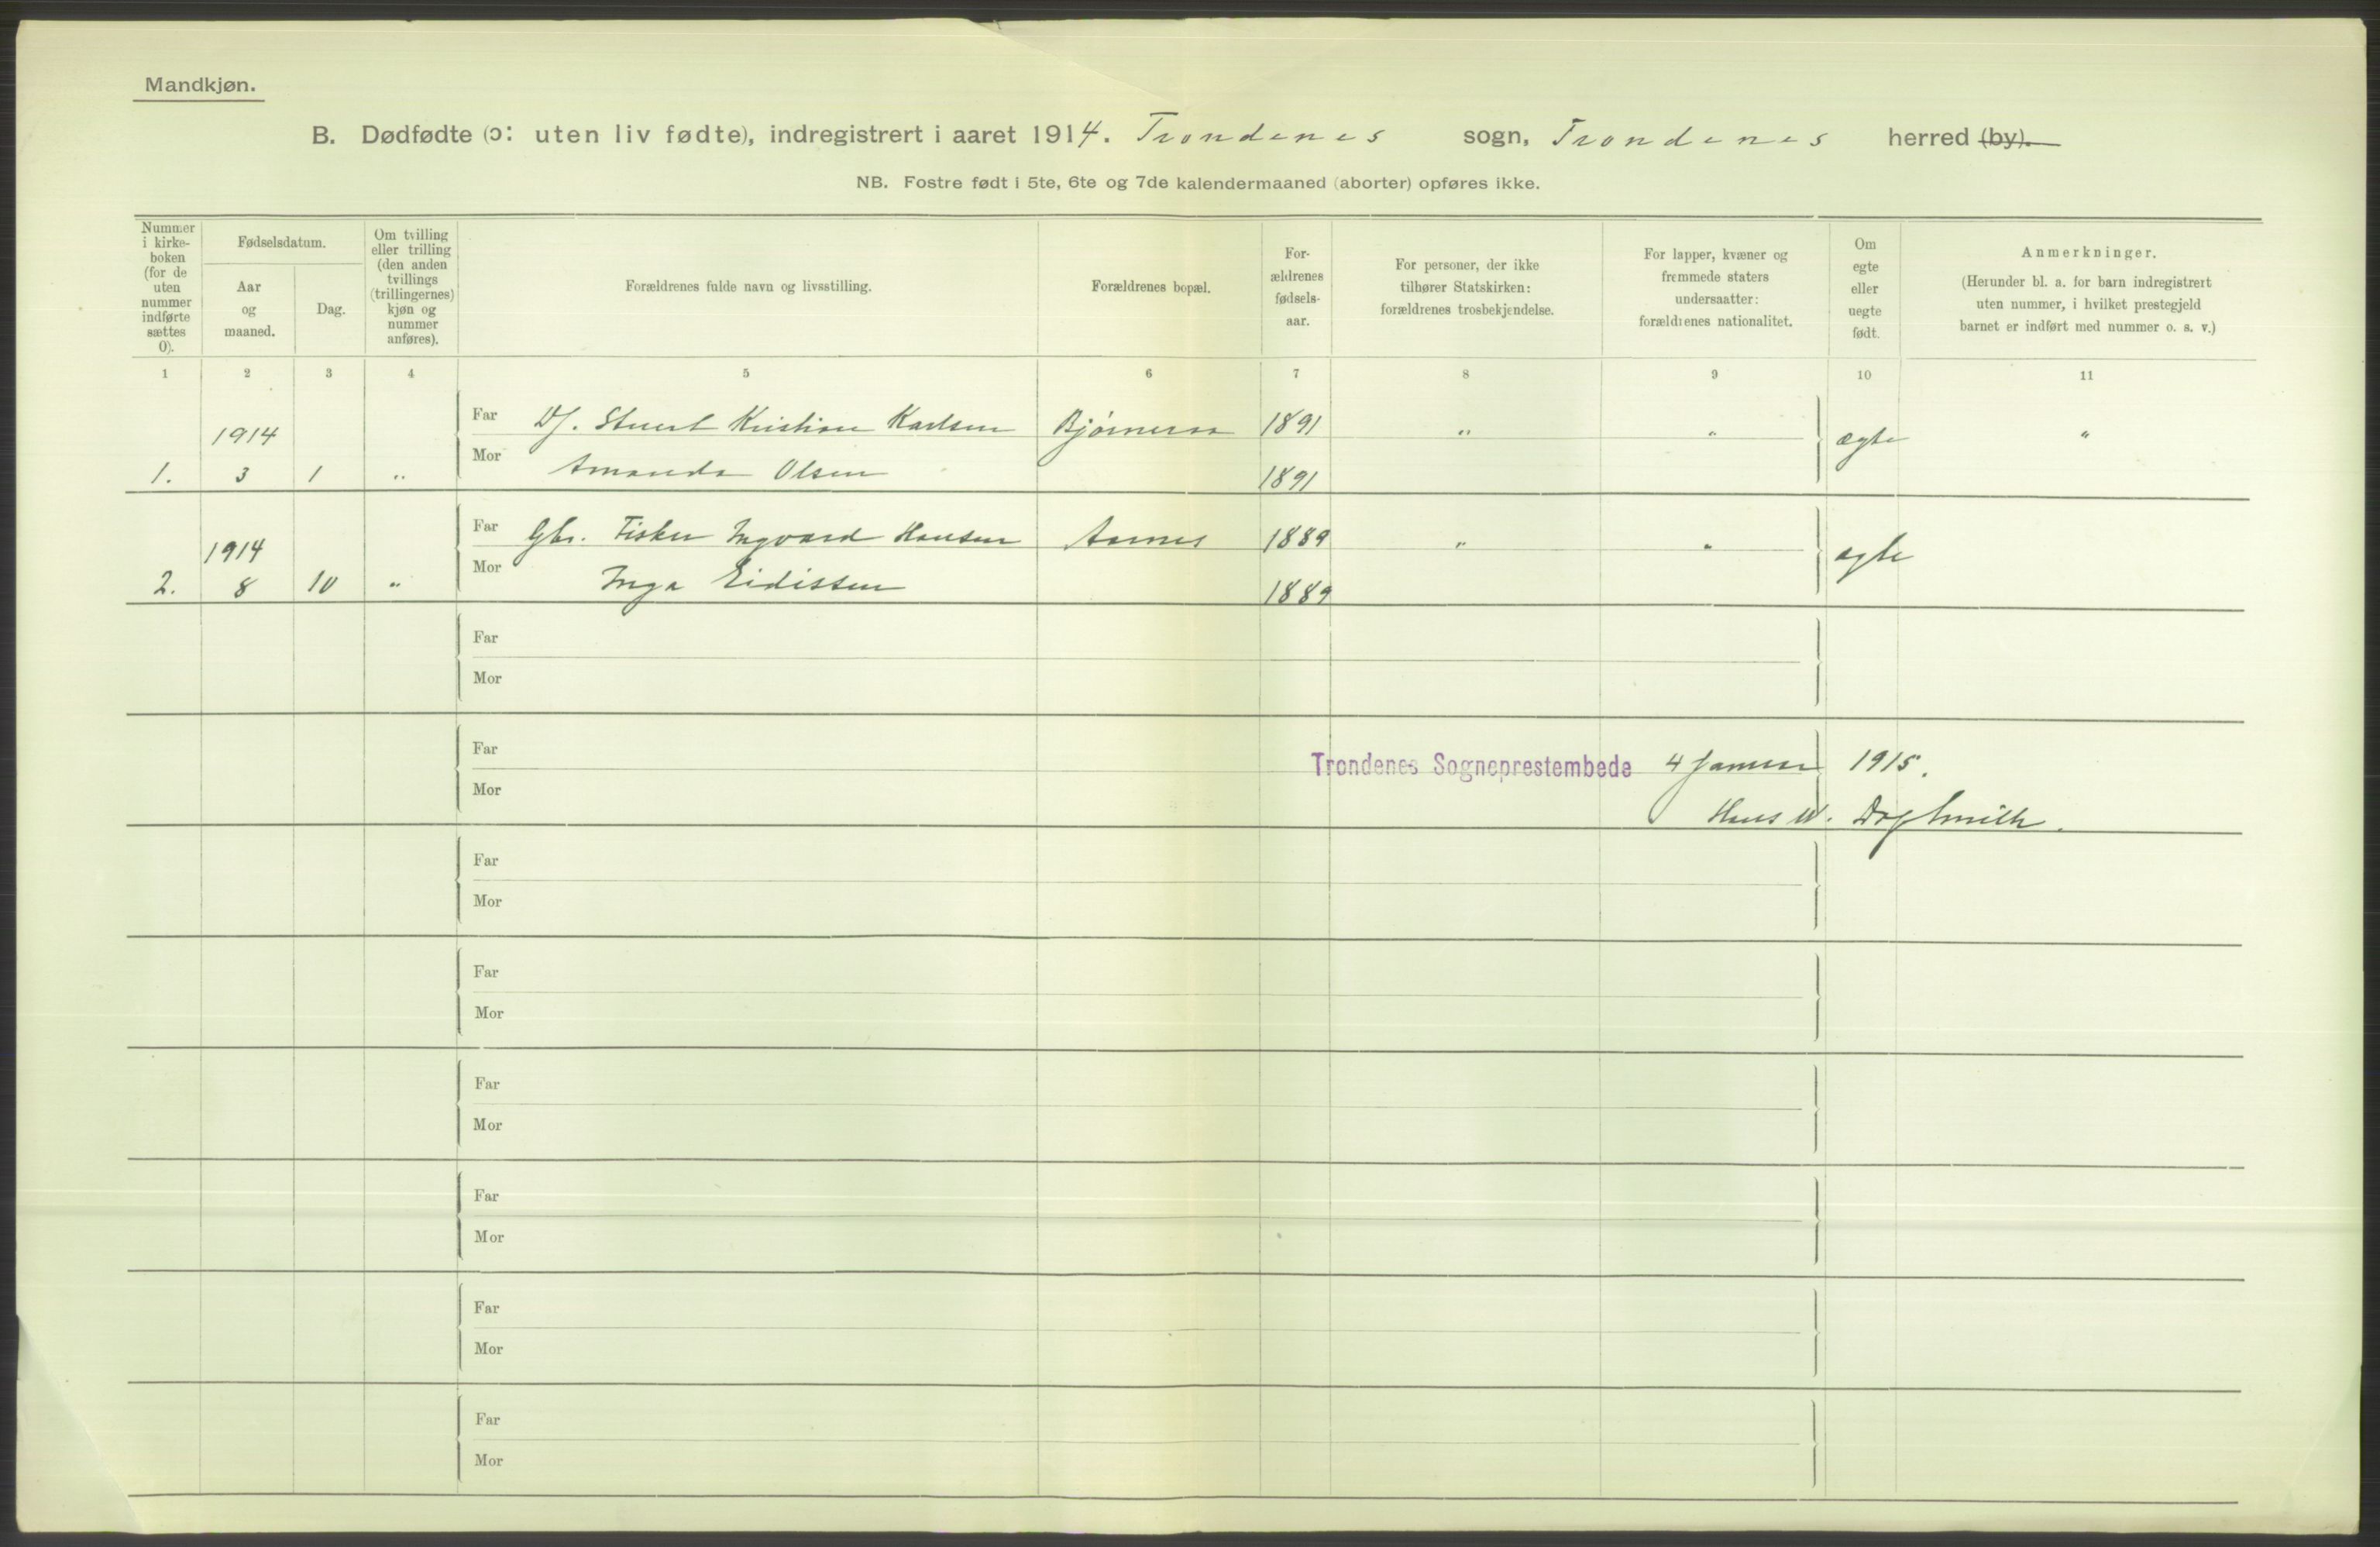 Mandkjøn.
B. Dødfødte (ɔ: uten liv fødte), indregistrert i aaret 1914. Trondenes sogn, Trondenes herred (by).
NB. Fostre født i 5te, 6te og 7de kalendermaaned (aborter) opføres ikke.
Nummer
i kirke-
boken
(for de
uten
nummer
indførte
sættes
0).
Fødselsdatum.
Aar
og
maaned.
Dag.
Om tvilling
eller trilling
(den anden
tvillings
(trillingernes)
kjøn og
nummer
anføres).
Forældrenes fulde navn og livsstilling.
Forældrenes bopæl.
For-
ældrenes
fødsels-
aar.
For personer, der ikke
tilhører Statskirken:
forældrenes trosbekjendelse.
For lapper, kvæner og
fremmede staters
undersaatter:
forældrenes nationalitet.
Om
egte
eller
uegte
født.
Anmerkninger.
(Herunder bl. a. for barn indregistrert
uten nummer, i hvilket prestegjeld
barnet er indført med nummer o. s. v.)
1 2 3 4 5 6 7 8 9 10 11
Far Kristian Karlsen 1891 " "
1914 ægte "
1. 3 1 " Mor Amanda Olsen 1891
Far Gbr. Fisker Ingvard Hansen Aarnes 1889 " "
1914 ægte
2. 8 10 " Mor Inga Eidissen 1889
Far
Mor
Far
Trondenes Sogneprestembede 4 Januar 1915.
Mor
Hans
Far
Mor
Far
Mor
Far
Mor
Far
Mor
Far
Mor
Far
Mor